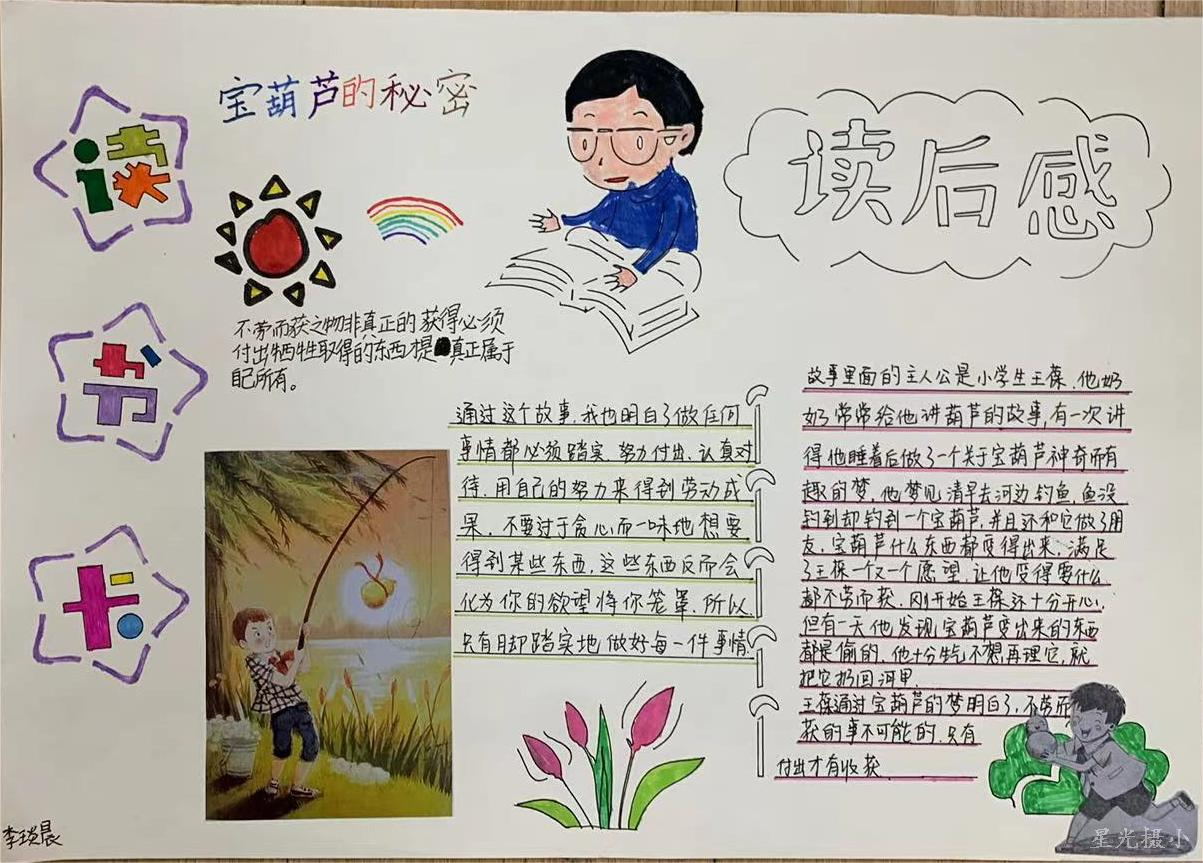 宝葫芦的秘密
读后感
读
书
卡
不劳而获之物非真正的获得必须
付出牺牲取得的东西才是真正属于
自己所有。
通过这个故事.我也明白了做任何
事情都必须踏实、努力付出、认真对
待.用自己的努力来得到劳动成
果.不要过于贪心而一味地想要
得到某些东西.这些东西反而会
化为你的欲望将你笼罩.所以
只有脚踏实地做好每一件事情.
故事里面的主人公是小学生王葆.他奶
奶常常给他讲葫芦的故事,有一次讲
得他睡着后做了一个关于宝葫芦神奇而有
趣的梦。他梦见清早去河边钓鱼,鱼没
钓到却钓到一个宝葫芦.并且还和它做了朋
友.宝葫芦什么东西都变得出来,满足
了王葆一个又一个愿望.让他觉得要什么
都不劳而获.刚开始王葆还十分开心.
但有一天他发现宝葫芦变出来的东西
都是偷的.他十分生气不想再理它,就
把它扔回河里.
王葆通过宝葫芦的梦明白了,不劳而
获的事不可能的.只有
付出才有收获.
星光摄小